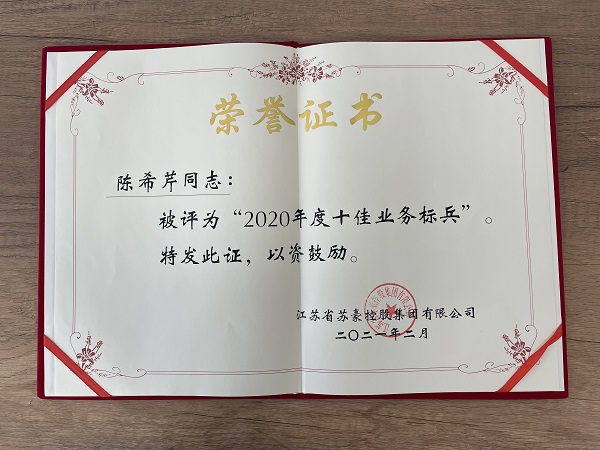 荣誉证书
陈希芹同志：
被评为“2020年度十佳业务标兵”。
特发此证，以资鼓励。
江苏省苏豪控股集团有限公司
二〇二一年二月